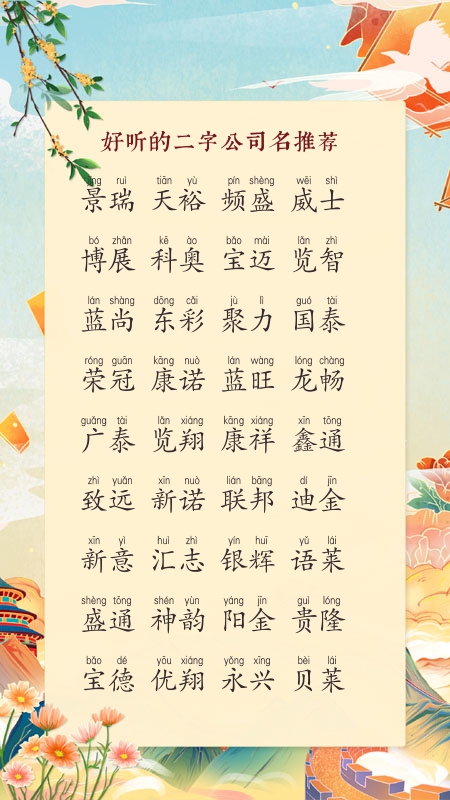 好听的二字公司名推荐
jǐng ruì tiān yù pín shèng wēi shì
景瑞 天裕 频盛 威士
bó zhǎn kē ào bǎo mài lǎn zhì
博展 科奥 宝迈 览智
lán shàng dōng cǎi jù lì guó tài
蓝尚 东彩 聚力 国泰
róng guān kāng nuò lán wàng lóng chàng
荣冠 康诺 蓝旺 龙畅
guǎng tài lǎn xiáng kāng xiáng xīn tōng
广泰 览翔 康祥 鑫通
zhì yuǎn xīn nuò lián bāng dí jīn
致远 新诺 联邦 迪金
xīn yì huì zhì yín huī yǔ lái
新意 汇志 银辉 语莱
shèng tōng shén yùn yáng jīn guì lóng
盛通 神韵 阳金 贵隆
bǎo dé yōu xiáng yǒng xīng bèi lái
宝德 优翔 永兴 贝莱